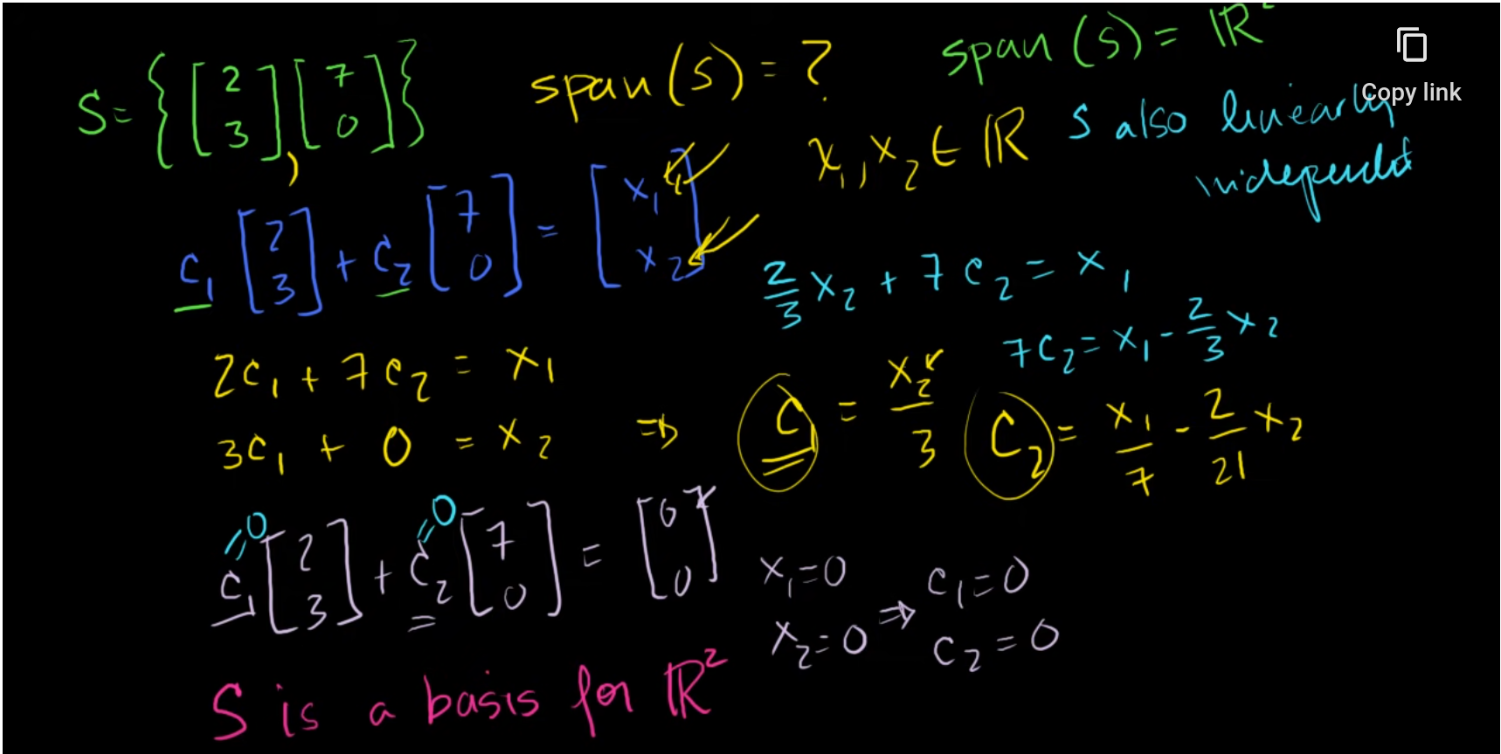 S = { [2 3], [7 0] } span(S) = ? span(S) = ℝ²
Copy link
x₁, x₂ ∈ ℝ S also linearly
independent
c₁ [2 3] + c₂ [7 0] = [x₁ x₂]
2/3 x₂ + 7c₂ = x₁
7c₂ = x₁ - 2/3 x₂
2c₁ + 7c₂ = x₁
3c₁ + 0 = x₂ ⇒ c₁ = x₂/3 c₂ = x₁/7 - 2/21 x₂
=0 =0
c₁ [2 3] + c₂ [7 0] = [0 0]
x₁=0 c₁=0
x₂=0 ⇒ c₂=0
S is a basis for ℝ²